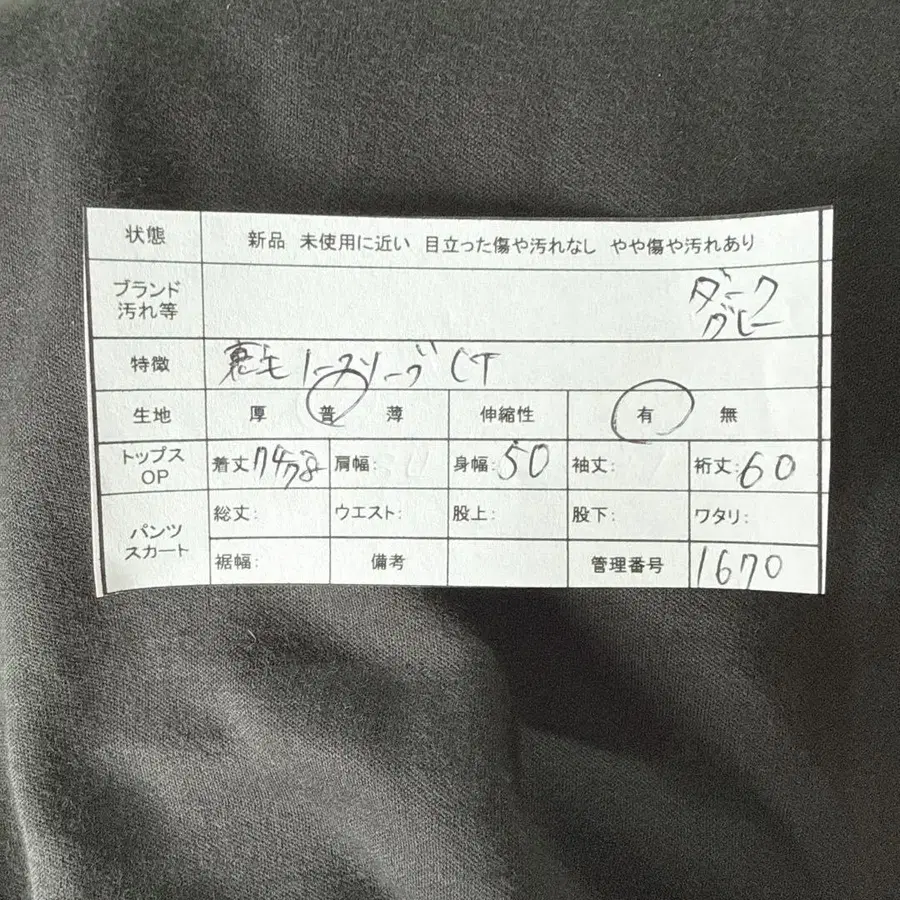 状態 新品 未使用に近い 目立った傷や汚れなし やや傷や汚れあり
ブランド
汚れ等
ダーク
グレー
特徴 裏毛 ノースリーブ
生地 厚 普 薄 伸縮性 有 無
トップス
OP
着丈 肩幅: 身幅: 50 袖丈: 裄丈: 60
パンツ
スカート
総丈: ウエスト: 股上: 股下: ワタリ:
裾幅: 備考 管理番号 1670